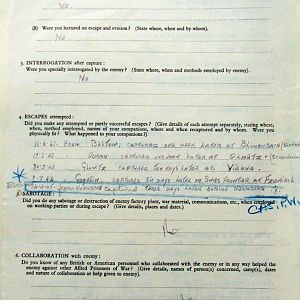 No.
(b) Were you lectured on escape and evasion? (State where, when and by whom).
No
3. INTERROGATION after capture :
Were you specially interrogated by the enemy? (State where, when and methods employed by enemy).
No
4. ESCAPES attempted :
Did you make any attempted or partly successful escapes? (Give details of each attempt separately, stating where,
when, method employed, names of your companions, where and when recaptured and by whom. Were you
physically fit? What happened to your companions?)
FROM CAPTURED ONE WEEK LATER AT
CAPTURED LATER AT
CAPTURED DAYS LATER AT VIENNA.
CAPTURED SIX DAYS LATER ON SWISS FRONTIER AT
CAPTURED THREE DAYS LATER
5. SABOTAGE:
Did you do any sabotage or destruction of enemy factory plant, war material, communications, etc., when employed
on working-parties or during escape? (Give details, places and dates.)
No.
6. COLLABORATION with enemy :
Do you know of any British or American personnel who collaborated with the enemy or in any way helped the
enemy against other Allied Prisoners of War? (Give details, names of person(s) concerned, camp(s), dates
and nature of collaboration or help given to enemy).